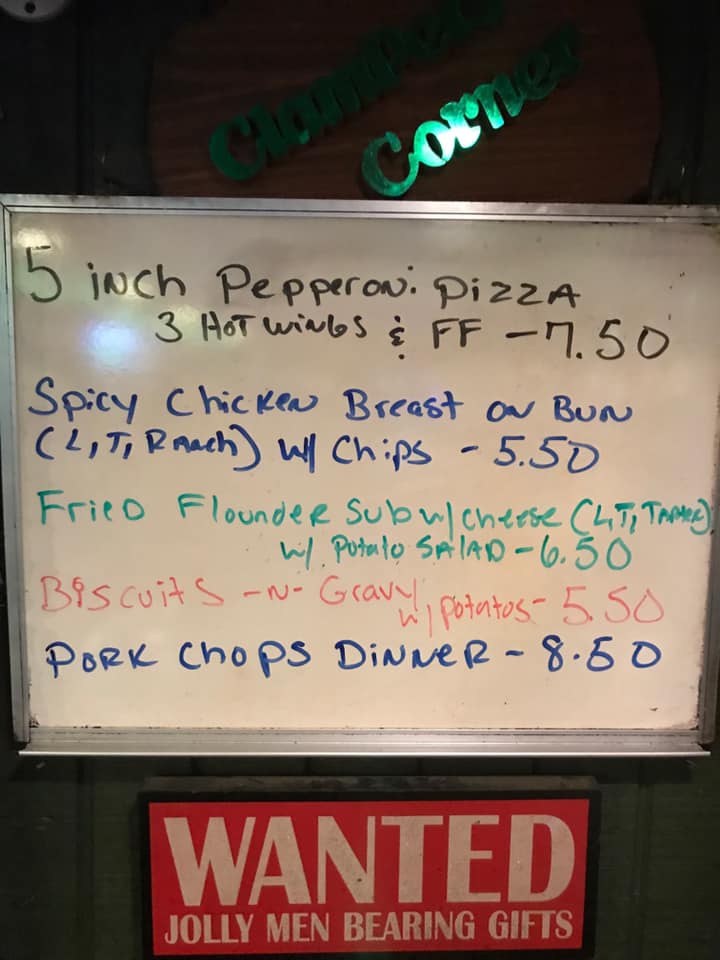 Corner
5 inch Pepperoni Pizza
3 Hot wings & FF - 7.50
Spicy Chicken Breast on Bun
(L, T, Ranch) w/ Chips - 5.50
Fried Flounder Sub w/ cheese (L, T, Tarter)
w/ Potato Salad - 6.50
Biscuits -n- Gravy
w/ potatos - 5.50
Pork Chops Dinner - 8.50
WANTED
JOLLY MEN BEARING GIFTS